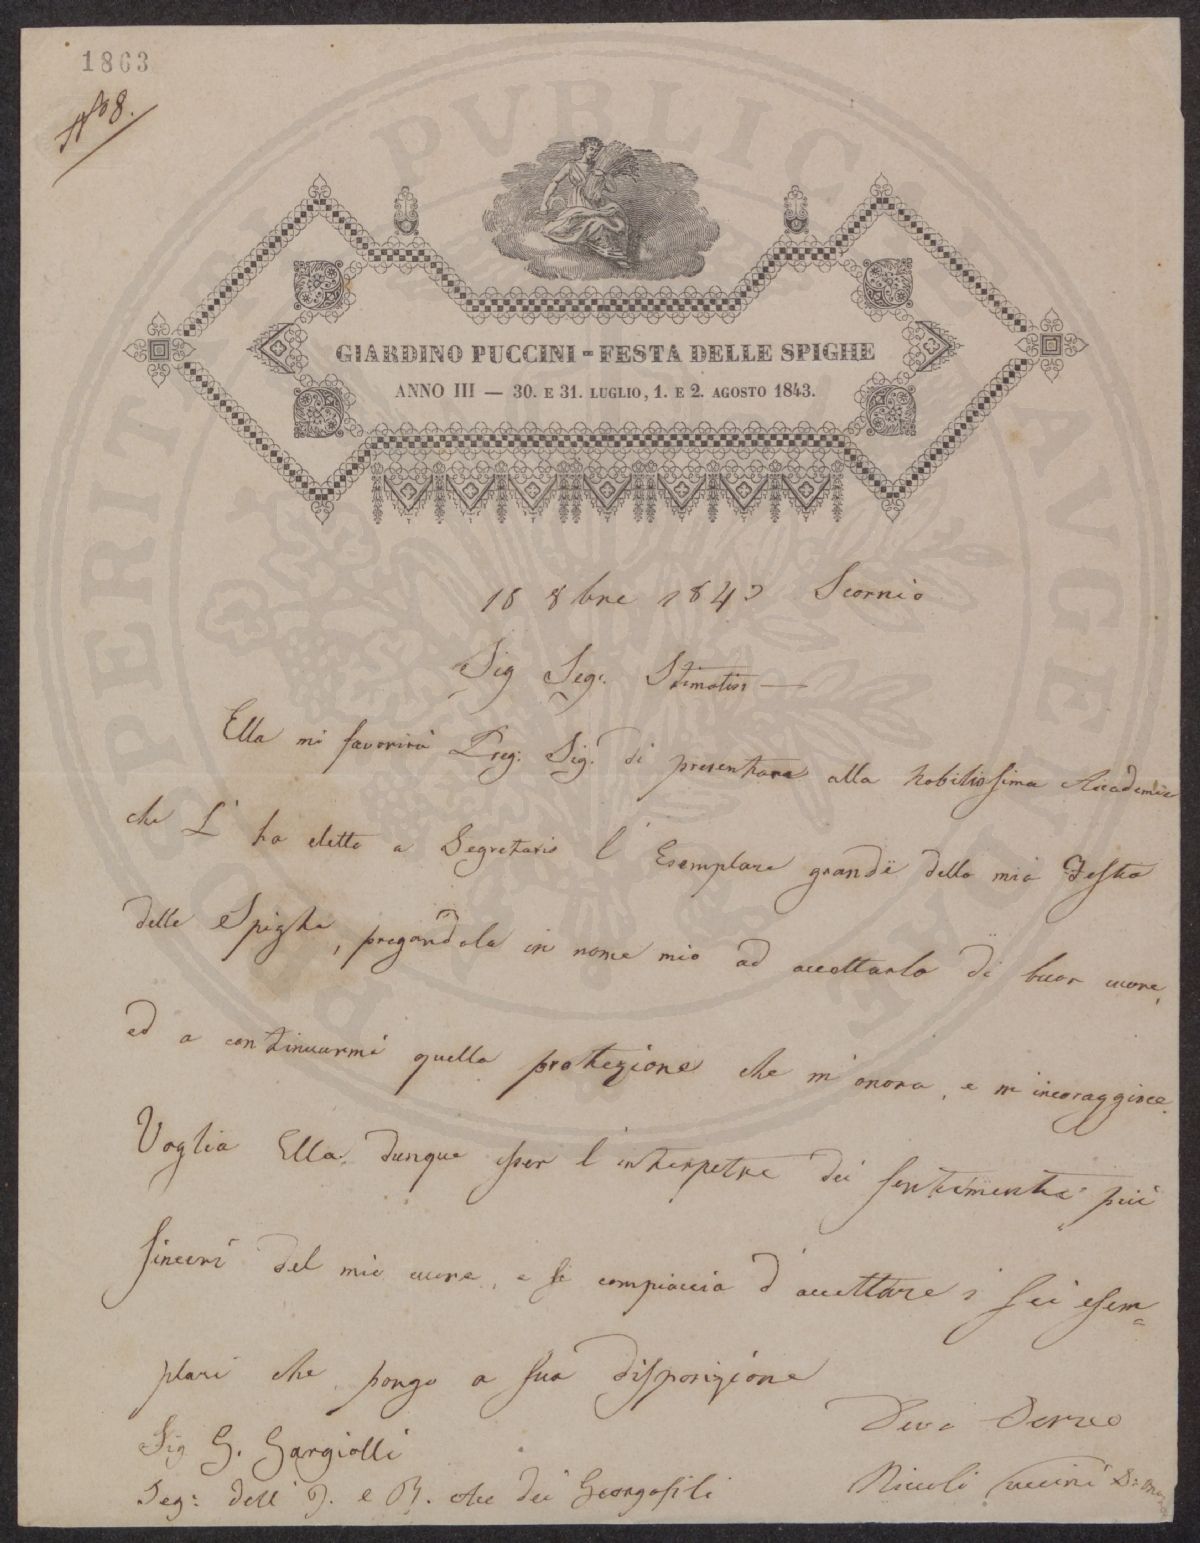 1863
N° 8.
GIARDINO PUCCINI - FESTA DELLE SPIGHE
ANNO III — 30. E 31. LUGLIO, 1. E 2. AGOSTO 1843.
18 8bre 1843 Scornio
Sig Seg. Stimatiss
Ella mi favorirà Preg: Sig. di presentare alla nobilissima Accademia
che L' ha eletto a Segretario l' Esemplare grande della mia Festa
delle Spighe, pregandola in nome mio ad accettarlo di buon cuore,
ed a continuarmi quella protezione che m' onora, e m' incoraggisce.
Voglia Ella dunque esser l' interpetre dei sentimenti più
sinceri del mio cuore, e si compiaccia d' accettare i sei esem=
plari che pongo a sua disposizione
Sig G. Gargiolli
Seg: dell' I. e R. Acc dei Georgofili
Devo Servo
Niccolò Puccini
PROSPERITATI PVBLICAE AVGENDAE